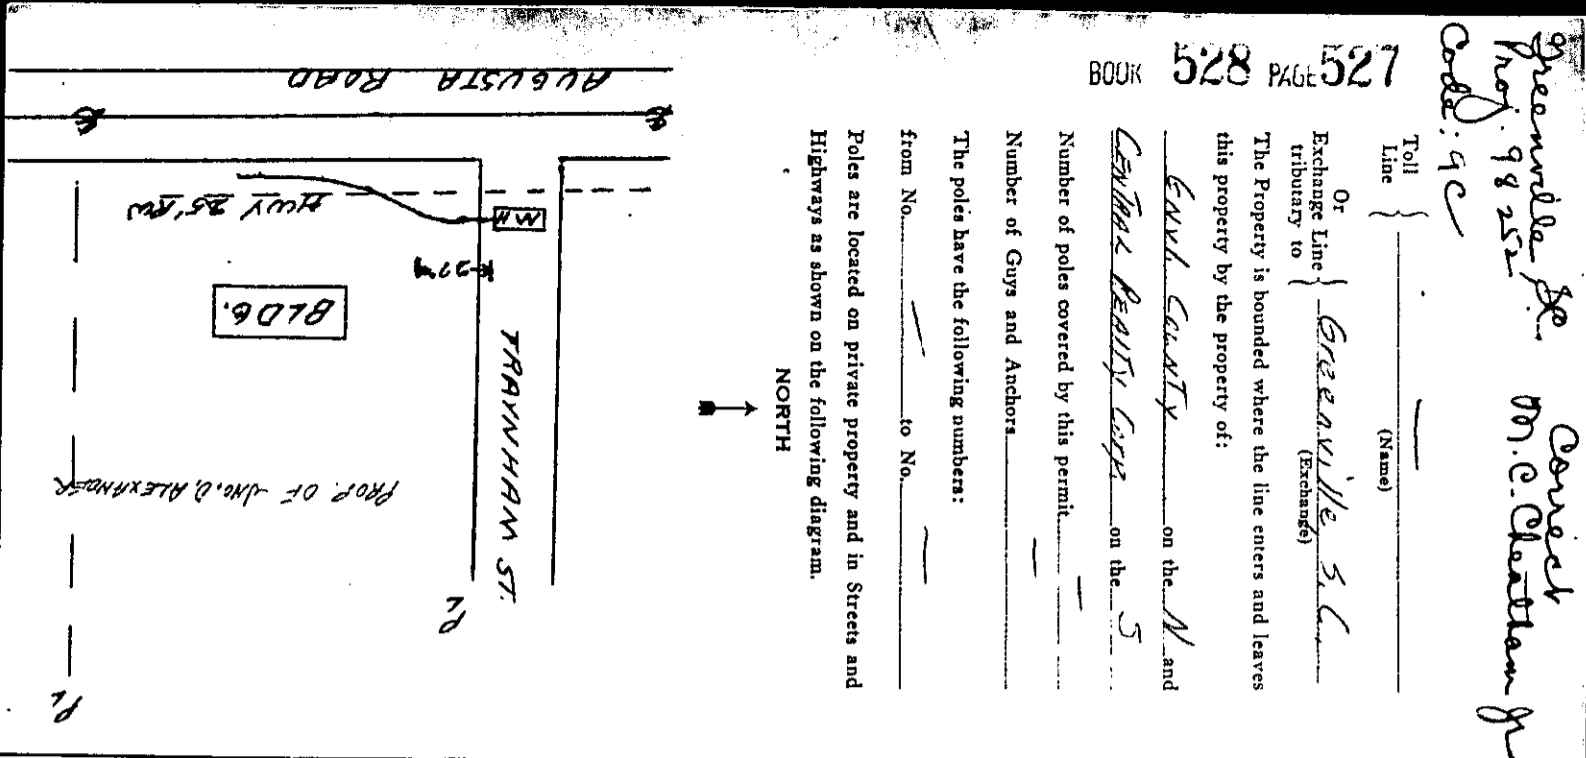 BOOK 528 PAGE 527
Greenville, SC.
Proj. 98252
Code: 9C
Correct
M.C. Cheatham Jr
Toll
Line } —
(Name)
Or
Exchange Line } Greenville, S.C.
tributary to
(Exchange)
The Property is bounded where the line enters and leaves
this property by the property of:
GNVL COUNTY on the N and
CENTRAL REALTY CORP. on the S
Number of poles covered by this permit —
Number of Guys and Anchors —
The poles have the following numbers:
from No. — to No. —
Poles are located on private property and in Streets and
Highways as shown on the following diagram.
NORTH
AUGUSTA ROAD
HWY 25' RW
MH
BLDG.
TRAYNHAM ST.
PROP. OF JNO. D. ALEXANDER
PL
PL